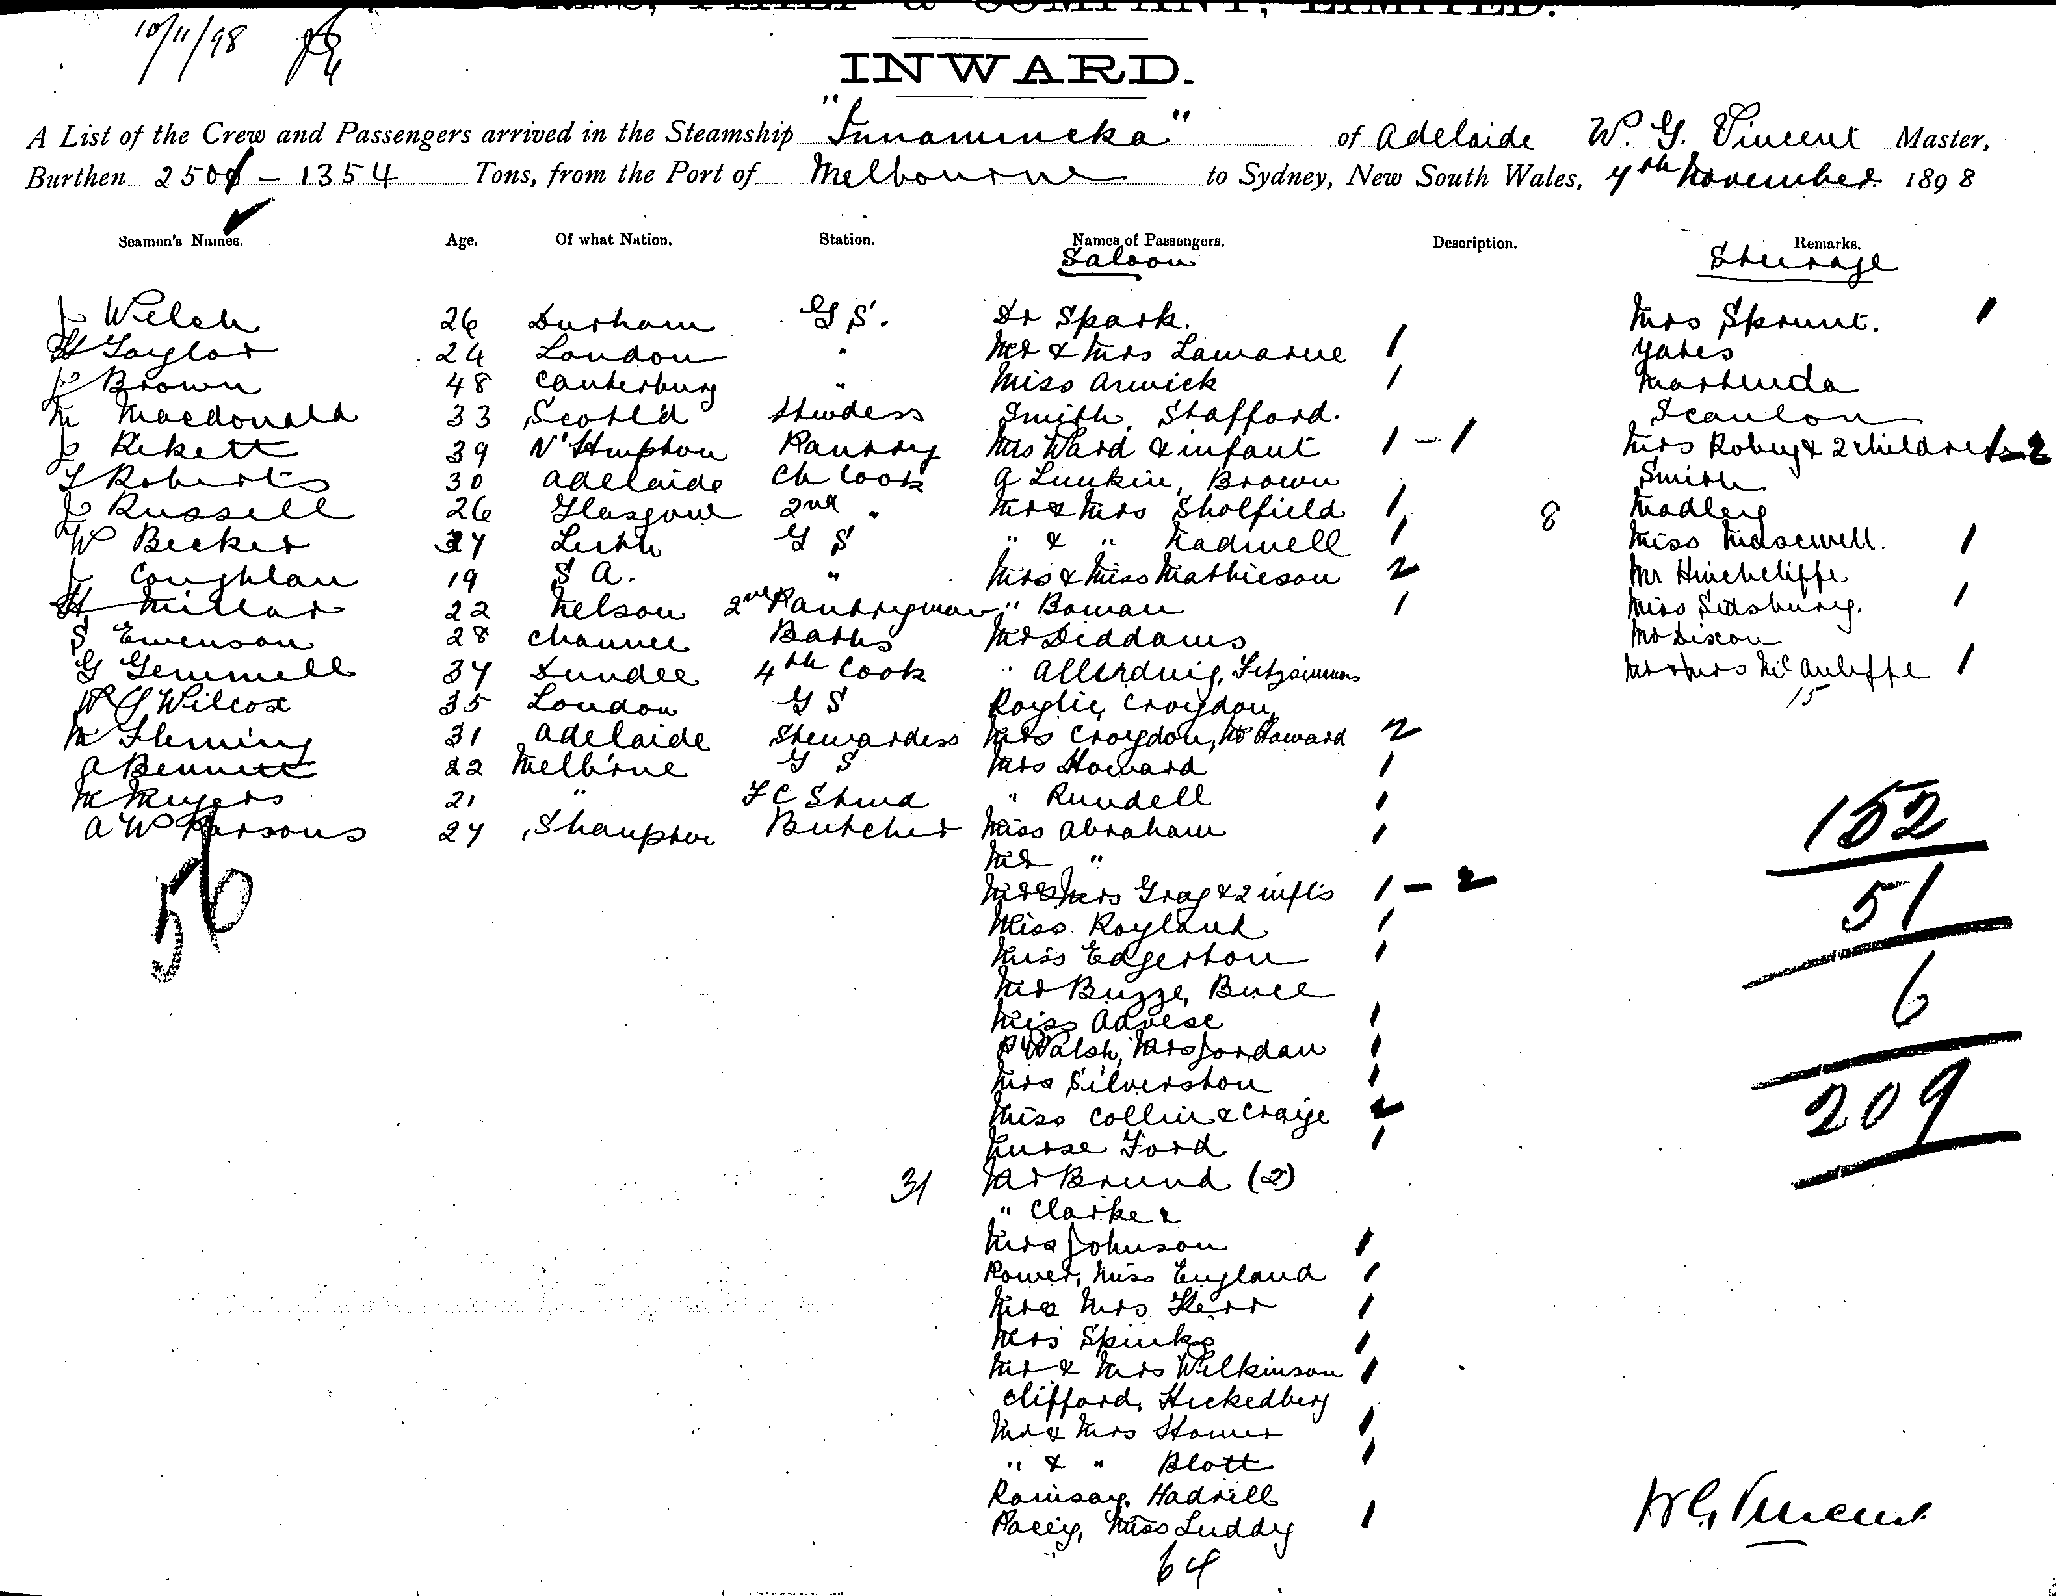 & COMPANY, LIMITED.
10/11/98
INWARD.
A List of the Crew and Passengers arrived in the Steamship "Innamincka" of Adelaide W. G. Vincent Master,
Burthen 2501 - 1354 Tons, from the Port of Melbourne to Sydney, New South Wales, 7th November 1898
Seamen's Names. Age. Of what Nation. Station. Names of Passengers. Description. Remarks.
Saloon Steerage
J Welch 26 Durham G S. Dr Spark. Mrs Sprunt. 1
H Taylor 24 London " Mr & Mrs Lamarue 1 Yates
J Brown 48 Canterbury " Miss Arwick 1 Martinda
M Macdonald 33 Scotl'd Stwdess Smith, Stafford. Scanlon
J Rikett 39 N'Hmpton Pantry Mrs Ward & infant 1 - 1 Mrs Robey & 2 children 1-2
T Roberts 30 Adelaide Ch Cook A Lumkin, Brown Smith
J Russell 26 Glasgow 2nd " Mr & Mrs Sholfield 1 8 Madley
W Becker 27 Leith G S " & " Kadwell 1 Miss Maxwell. 1
J Coughlan 19 S A. " Mrs & Miss Mathieson 2 Mr Hinchcliffe
H Millar 22 Nelson 2nd Pantryman " Boman 1 Miss Sidsbury. 1
S Ewenson 28 Channel Baths Mr Diddams Mr Dixon
G Gemmell 37 Dundee 4th Cook " Allerduig, Fitzsimmons Mr & Mrs McAuliffe 1
W G Wilcox 35 London G S Roylie, Croydon, 15
M Fleming 31 Adelaide Stewardess Mrs Croydon, Howard 2
A Bennett 22 Melb'rne G S Mrs Howard 1
M Meyers 21 " F C Stwd " Rundell 1
A W Parsons 27 S'hampton Butcher Miss Abraham 1
152
Mr "
56 Mr & Mrs Gray & 2 infts 1 - 2
51
Miss Royland 1
Miss Edgerton 1
Mr Buzze, Buce
6
Miss Advese 1
P Walsh, Mrs Jordan 1
Mrs Silverston 1
209
Miss Collin & Craige 2
Nurse Ford 1
31 Mr Brund (2)
" Clarke &
Mrs Johnson 1
Power, Miss England 1
Mr & Mrs Kerr 1
Mrs Spinks 1
Mr & Mrs Wilkinson 1
Clifford, Hickedberg
Mr & Mrs Stower 1
" & " Blott 1
Ramsay, Hadrill
Pacey, Miss Luddy 1
W G Vincent
64